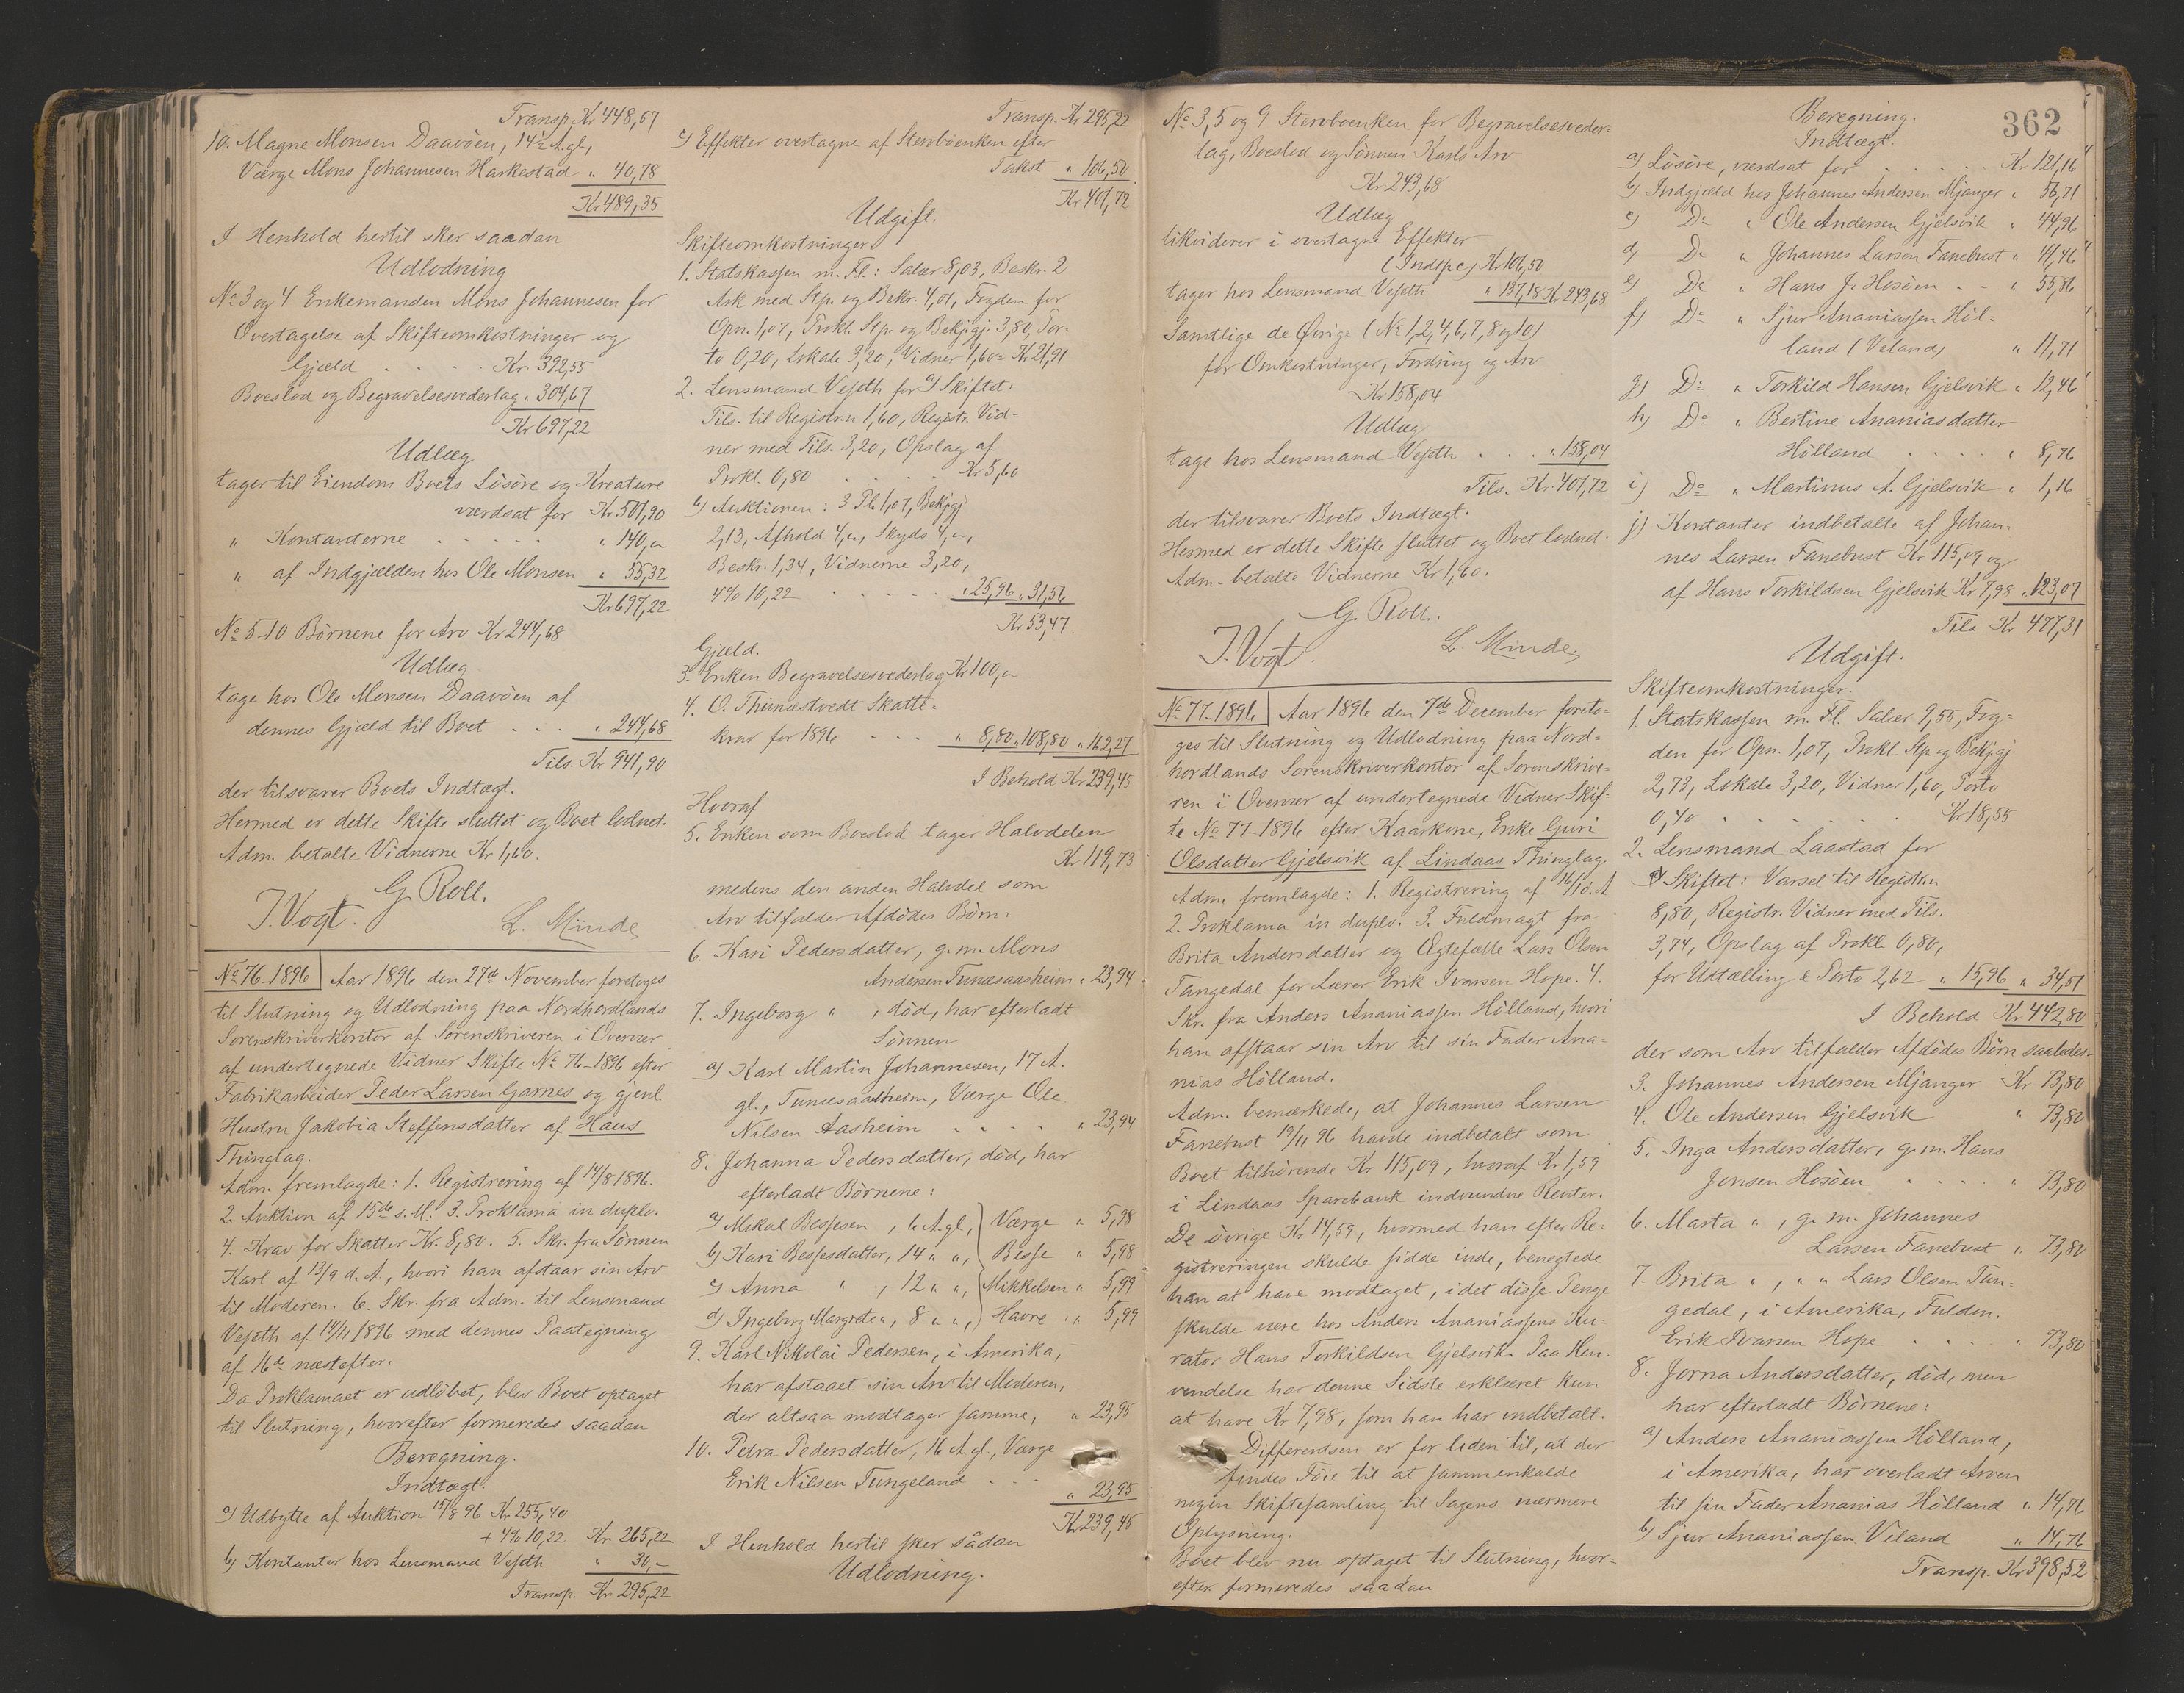 Transp. Kr 448,57
10. Magne Monsen Daavöen, 14½ A. gl,
Værge Mons Johannesen Harkestad " 40,78
Kr 489,35
I Henhold hertil sker saadan
Udlodning
No 3 og 4 Enkemanden Mons Johannesen for
Overtagelse af Skifteomkostninger og
Gjæld . . . . Kr. 392,55
Boeslod og Begravelsesvederlag " 304,67
Kr 697,22
Udlæg
tager til Eiendom Boets Lösöre og Kreature
værdsat for Kr 501,90
" Kontanterne . . . . " 140,"
" af Indgjælden hos Ole Monsen " 55,32
Kr 697,22
No 5-10 Börnene for Arv Kr 244,68
Udlæg
tage hos Ole Monsen Daavöen af
dennes Gjæld til Boet . . . " 244,68
Tils. Kr 941,90
der tilsvarer Boets Indtægt.
Hermed er dette Skifte sluttet og Boet lodnet.
Adm. betalte Vidnerne Kr 1,60.
G. Roll.
J. Vogt. L. Minde
No 76-1896 Aar 1896 den 27de November foretoges
til Slutning og Udlodning paa Nordhordlands
Sorenskriverkontor af Sorenskriveren i Overvær
af undertegnede Vidner Skifte No 76-1896 efter
Fabrikarbeider Peder Larsen Garnes og gjenl.
Hustru Jakobia Steffensdatter af Haus
Thinglag.
Adm. fremlagde: 1. Registrering af 14/8 1896.
2. Auktion af 15de s. M. 3. Proklama in duplo.
4. Krav for Skatter Kr. 8,80. 5. Skr. fra Sönnen
Karl af 13/9 d. A., hvori han afstaar sin Arv
til Moderen. 6. Skr. fra Adm. til Lensmand
Vejeth af 14/11 1896 med dennes Paategning
af 16de næstefter.
Da Proklamaet er udlöbet, blev Boet optaget
til Slutning, hvorefter formeredes saadan
Beregning.
Indtægt.
a) Udbytte af Auktion 15/8 96 Kr 255,40
+ 4% 10,22 Kr 265,22
b) Kontanter hos Lensmand Vejeth " 30,-
Transp. Kr 295,22
Transp. Kr 295,22
c) Effekter overtagne af Stervboenken efter
Takst " 106,50
Kr 401,72
Udgift.
Skifteomkostninger
1. Statskassen m. Fl.: Salær 8,03, Beskr. 2
Ask med Stp. og Bekr. 4,01, Fogden for
Opn. 1,07, Prokl. Stp. og Bekjgj. 3,80, Por-
to 0,20, Lokale 3,20, Vidner 1,60 = Kr 21,91
2. Lensmand Vejeth for a) Skiftet:
Tils. til Registr.n 1,60, Registr. Vid-
ner med Tils. 3,20, Opslag af
Prokl. 0,80 . . . Kr 5,60
b) Auktionen: 3 Pl. 1,07, Bekjgj
2,13, Afhold 4,", Skyds 4,",
Beskr. 1,34, Vidnerne 3,20,
4% 10,22 . . . . " 25,96 " 31,56
Kr 53,47.
Gjæld.
3. Enken Begravelsesvederlag Kr 100,"
4. O. Thunæstvedt Skatte-
krav for 1896 . . . " 8,80 " 108,80 " 162,27
I Behold Kr 239,45
Hvoraf
5. Enken som Boeslod tager Halvdelen
Kr 119,73
medens den anden Halvdel som
Arv tilfalder Afdödes Börn:
6. Kari Pedersdatter, g. m. Mons
Andersen Tunæsaasheim " 23,94
7. Ingeborg " , död, har efterladt
Sönnen
a) Karl Martin Johannesen, 17 A.
gl., Tunæsaasheim, Værge Ole
Nilsen Aasheim . . . . " 23,94
8. Johanna Pedersdatter, död, har
efterladt Börnene:
a) Mikal Bessesen, 16 A. gl, Værge " 5,98
b) Kari Bessesdatter, 14 " ", Besse " 5,98
c) Anna " , 12 " ", Mikkelsen " 5,99
d) Ingeborg Margrete ", 8 " ", Havre " 5,99
9. Karl Nikolai Pedersen, i Amerika,
har afstaaet sin Arv til Moderen,
der altsaa modtager samme, " 23,95
10. Petra Pedersdatter, 16 A. gl., Værge
Erik Nilsen Tungeland . . . " 23,95
Kr 239,45
I Henhold hertil sker sådan
Udlodning.
No 3, 5 og 9 Stervboenken for Begravelsesveder-
lag, Boeslod og Sönnen Karls Arv
Kr 243,68
Udlæg
likviderer i overtagne Effekter
(Indt. p. c) Kr 106,50
tager hos Lensmand Vejeth " 137,18 Kr 243,68
Samtlige de Övrige (No 1, 2, 4, 6, 7, 8 og 10)
for Omkostninger, Fordring og Arv
Kr 158,04
Udlæg
tage hos Lensmand Vejeth . . . " 158,04
Tils. Kr. 401,72
der tilsvarer Boets Indtægt.
Hermed er dette Skifte sluttet og Boet lodnet.
Adm. betalte Vidnerne Kr 1,60.
G. Roll.
J. Vogt. L. Minde
No 77-1896 Aar 1896 den 7de December foreto-
ges til Slutning og Udlodning paa Nord-
hordlands Sorenskriverkontor af Sorenskrive-
ren i Overvær af undertegnede Vidner Skif-
te No 77-1896 efter Kaarkone, Enke Guri
Olsdatter Gjelsvik af Lindaas Thinglag.
Adm. fremlagde: 1. Registrering af 16/10 d. A
2. Proklama in duplo. 3. Fuldmagt fra
Brita Andersdatter og Ægtefælle Lars Olsen
Tangedal for Lærer Erik Ivarsen Hope. 4.
Skr. fra Anders Ananiassen Hölland, hvori
han afstaar sin Arv til sin Fader Ana-
nias Hölland.
Adm. bemærkede, at Johannes Larsen
Fanebust 19/11 96 havde indbetalt som
Boet tilhörende Kr 115,09, hvoraf Kr 1,59
i Lindaas Sparebank indvundne Renter.
De övrige Kr 14,59, hvormed han efter Re-
gistreringen skulde sidde inde, benegtede
han at have modtaget, idet disse Penge
skulde være hos Anders Ananiassens Ku-
rator Hans Torkildsen Gjelsvik. Paa Hen-
vendelse har denne Sidste erklæret kun
at have Kr 7,98, som han har indbetalt.
Differentsen er for liden til, at der
findes Föie til at sammenkalde
nogen Skiftesamling til Sagens nærmere
Oplysning.
Boet blev nu optaget til Slutning, hvor-
efter formeredes saadan
362
Beregning.
Indtægt.
a) Lösöre, værdsat for . . . . Kr 121,16
b) Indgjæld hos Johannes Andersen Mjanger " 56,71
c) Do " Ole Andersen Gjelsvik " 44,96
d) Do " Johannes Larsen Fanebust " 41,46
e) Do " Hans J. Hosöen - - " 55,86
f) Do " Sjur Ananiassen Höl-
land (Veland) " 11,71
g) Do " Torkild Hansen Gjelsvik " 12,46
h) Do " Bertine Ananiasdatter
Hölland . . . . " 8,76
i) Do " Martinus A. Gjelsvik " 1,16
j) Kontanter indbetalte af Johan-
nes Larsen Fanebust Kr 115,09 og
af Hans Torkildsen Gjelsvik Kr 7,98 " 123,07
Tils Kr 477,31
Udgift.
Skifteomkostninger.
1. Statskassen m. Fl. Salær 9,55, Fog-
den for Opn. 1,07, Prokl. Stp. og Bekjgj.
2,73, Lokale 3,20, Vidner 1,60, Porto
0,40 . . . . . Kr 18,55
2. Lensmand Laastad for
Skiftet: Varsel til Registr.n
8,80, Registr. Vidner med Tils.
3,74, Opslag af Prokl. 0,80,
for Udtælling & Porto 2,62 " 15,96 " 34,51
I Behold Kr 442,80
der som Arv tilfalder Afdödes Börn saaledes.
3. Johannes Andersen Mjanger Kr 73,80
4. Ole Andersen Gjelsvik " 73,80
5. Inga Andersdatter, g. m. Hans
Jonsen Hosöen . . . . " 73,80
6. Marta " , g. m. Johannes
Larsen Fanebust " 73,80
7. Brita " , " " Lars Olsen Tan-
gedal, i Amerika, Fuldm.
Erik Ivarsen Hope . . . " 73,80
8. Jorna Andersdatter, död, men
har efterladt Börnene:
a) Anders Ananiassen Hölland,
i Amerika, har overladt Arven
til sin Fader Ananias Hölland " 14,76
b) Sjur Ananiassen Veland " 14,76
Transp. Kr 398,52